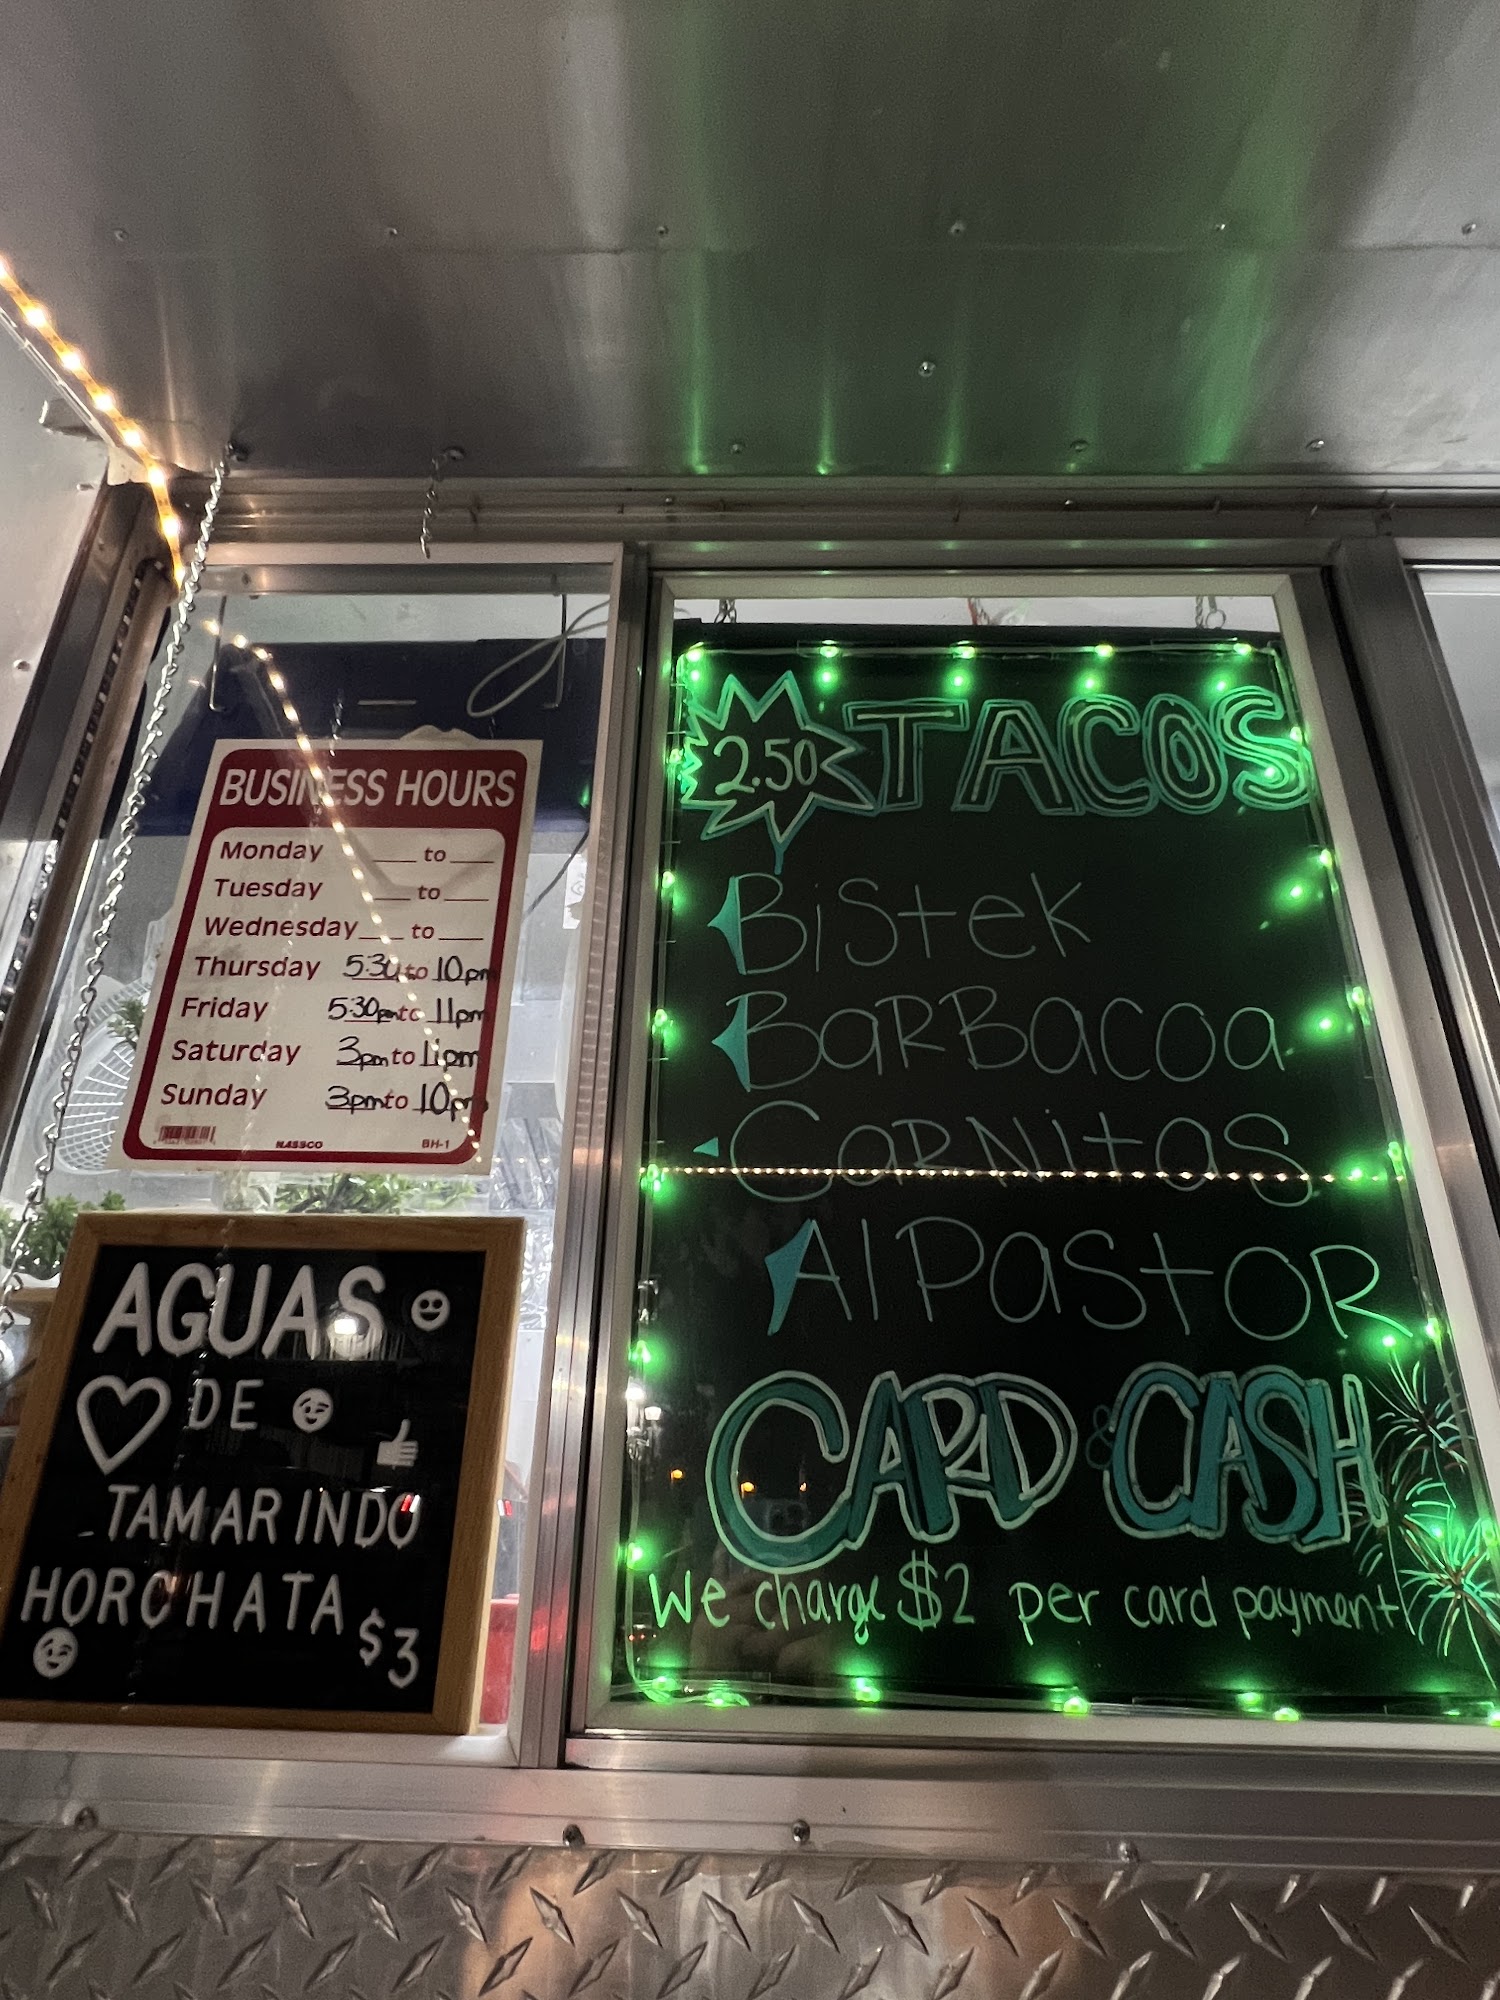 BUSINESS HOURS
Monday ___ to ___
Tuesday ___ to ___
Wednesday ___ to ___
Thursday 5:30 to 10pm
Friday 5:30pm to 11pm
Saturday 3pm to 11pm
Sunday 3pm to 10pm
NASSCO BH-1
AGUAS
DE
TAMARINDO
HORCHATA $3
2.50 TACOS
Bistek
BaRBacoa
CaRNitas
Al PastoR
CARD & CASH
We charge $2 per card payment